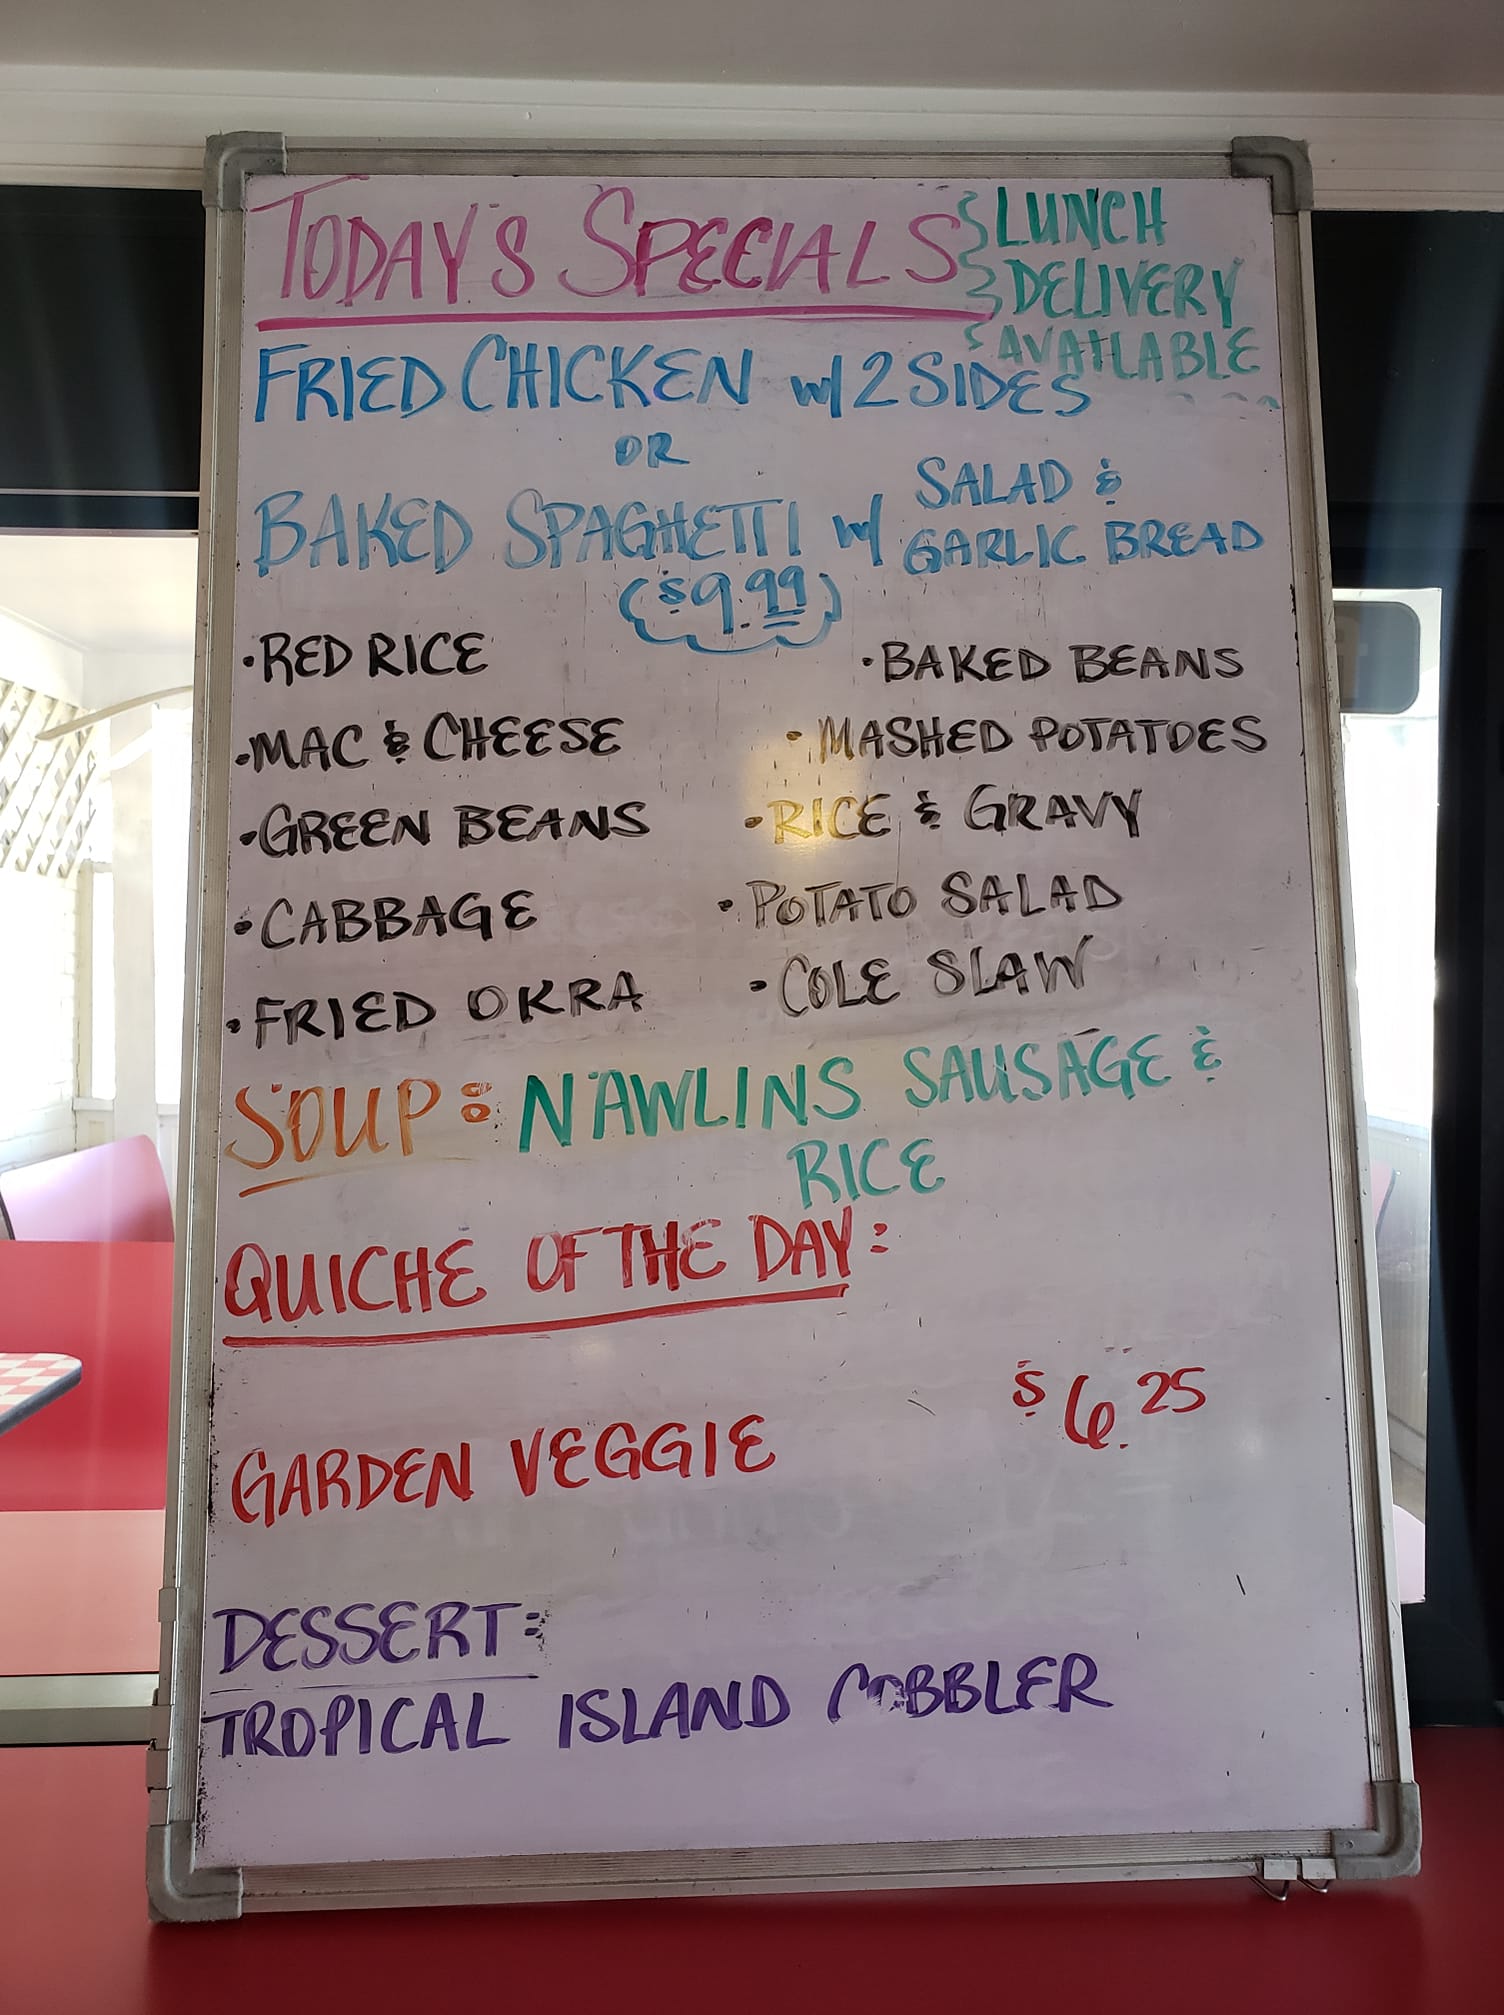 TODAY'S SPECIALS
LUNCH
DELIVERY
AVAILABLE
FRIED CHICKEN w/ 2 SIDES
OR
BAKED SPAGHETTI w/ SALAD &
GARLIC BREAD
($9.99)
•RED RICE
•BAKED BEANS
•MAC & CHEESE
•MASHED POTATOES
•GREEN BEANS
•RICE & GRAVY
•CABBAGE
•POTATO SALAD
•FRIED OKRA
•COLE SLAW
SOUP: NAWLINS SAUSAGE &
RICE
QUICHE OF THE DAY:
GARDEN VEGGIE $6.25
DESSERT:
TROPICAL ISLAND COBBLER